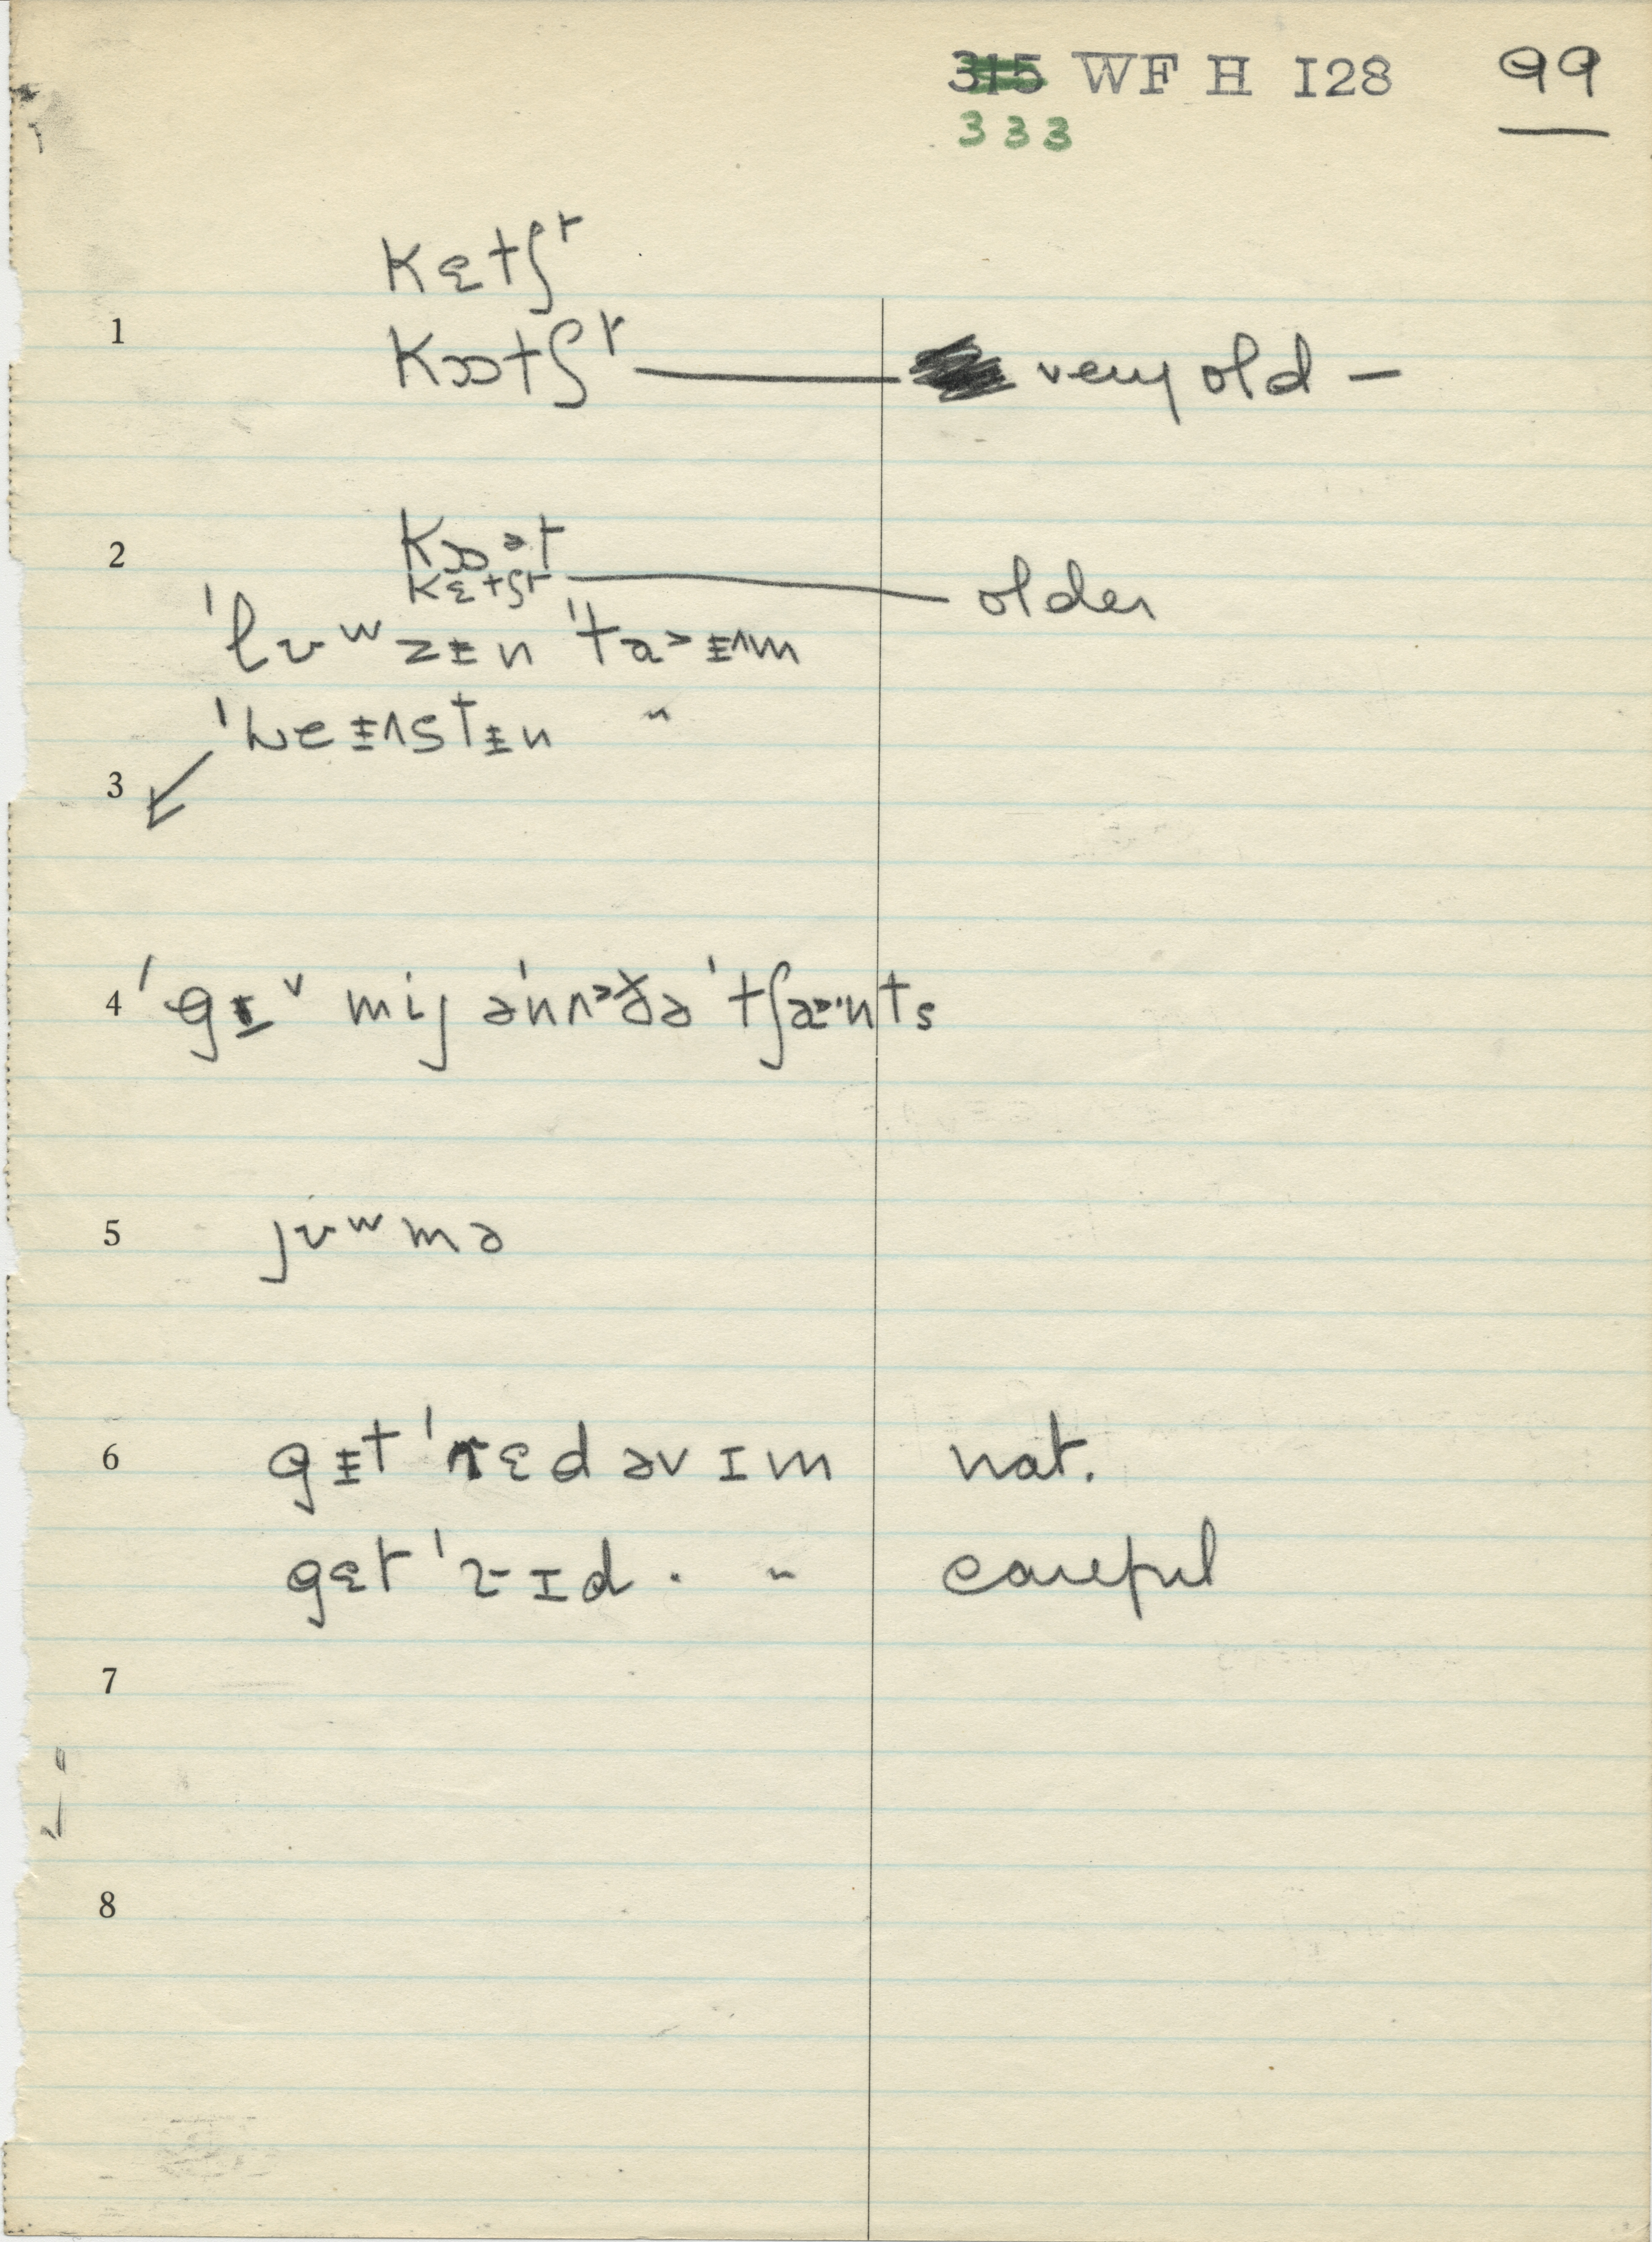 315 WF H I28 99
333
kɛtʃr
1 kɔtʃr — very old —
2 kɔət
kɛtʃr — older
ˈlʊʷzɨn ˈtaᵊɨʌm
ˈweɨʌstɨn "
3
4 ˈgɪv mij əˈnʌðə ˈtʃænts
5 jʊʷmə
6 gɨt ˈrɛd əv ɪm nat.
gɛt ˈrɪd . " careful
7
8